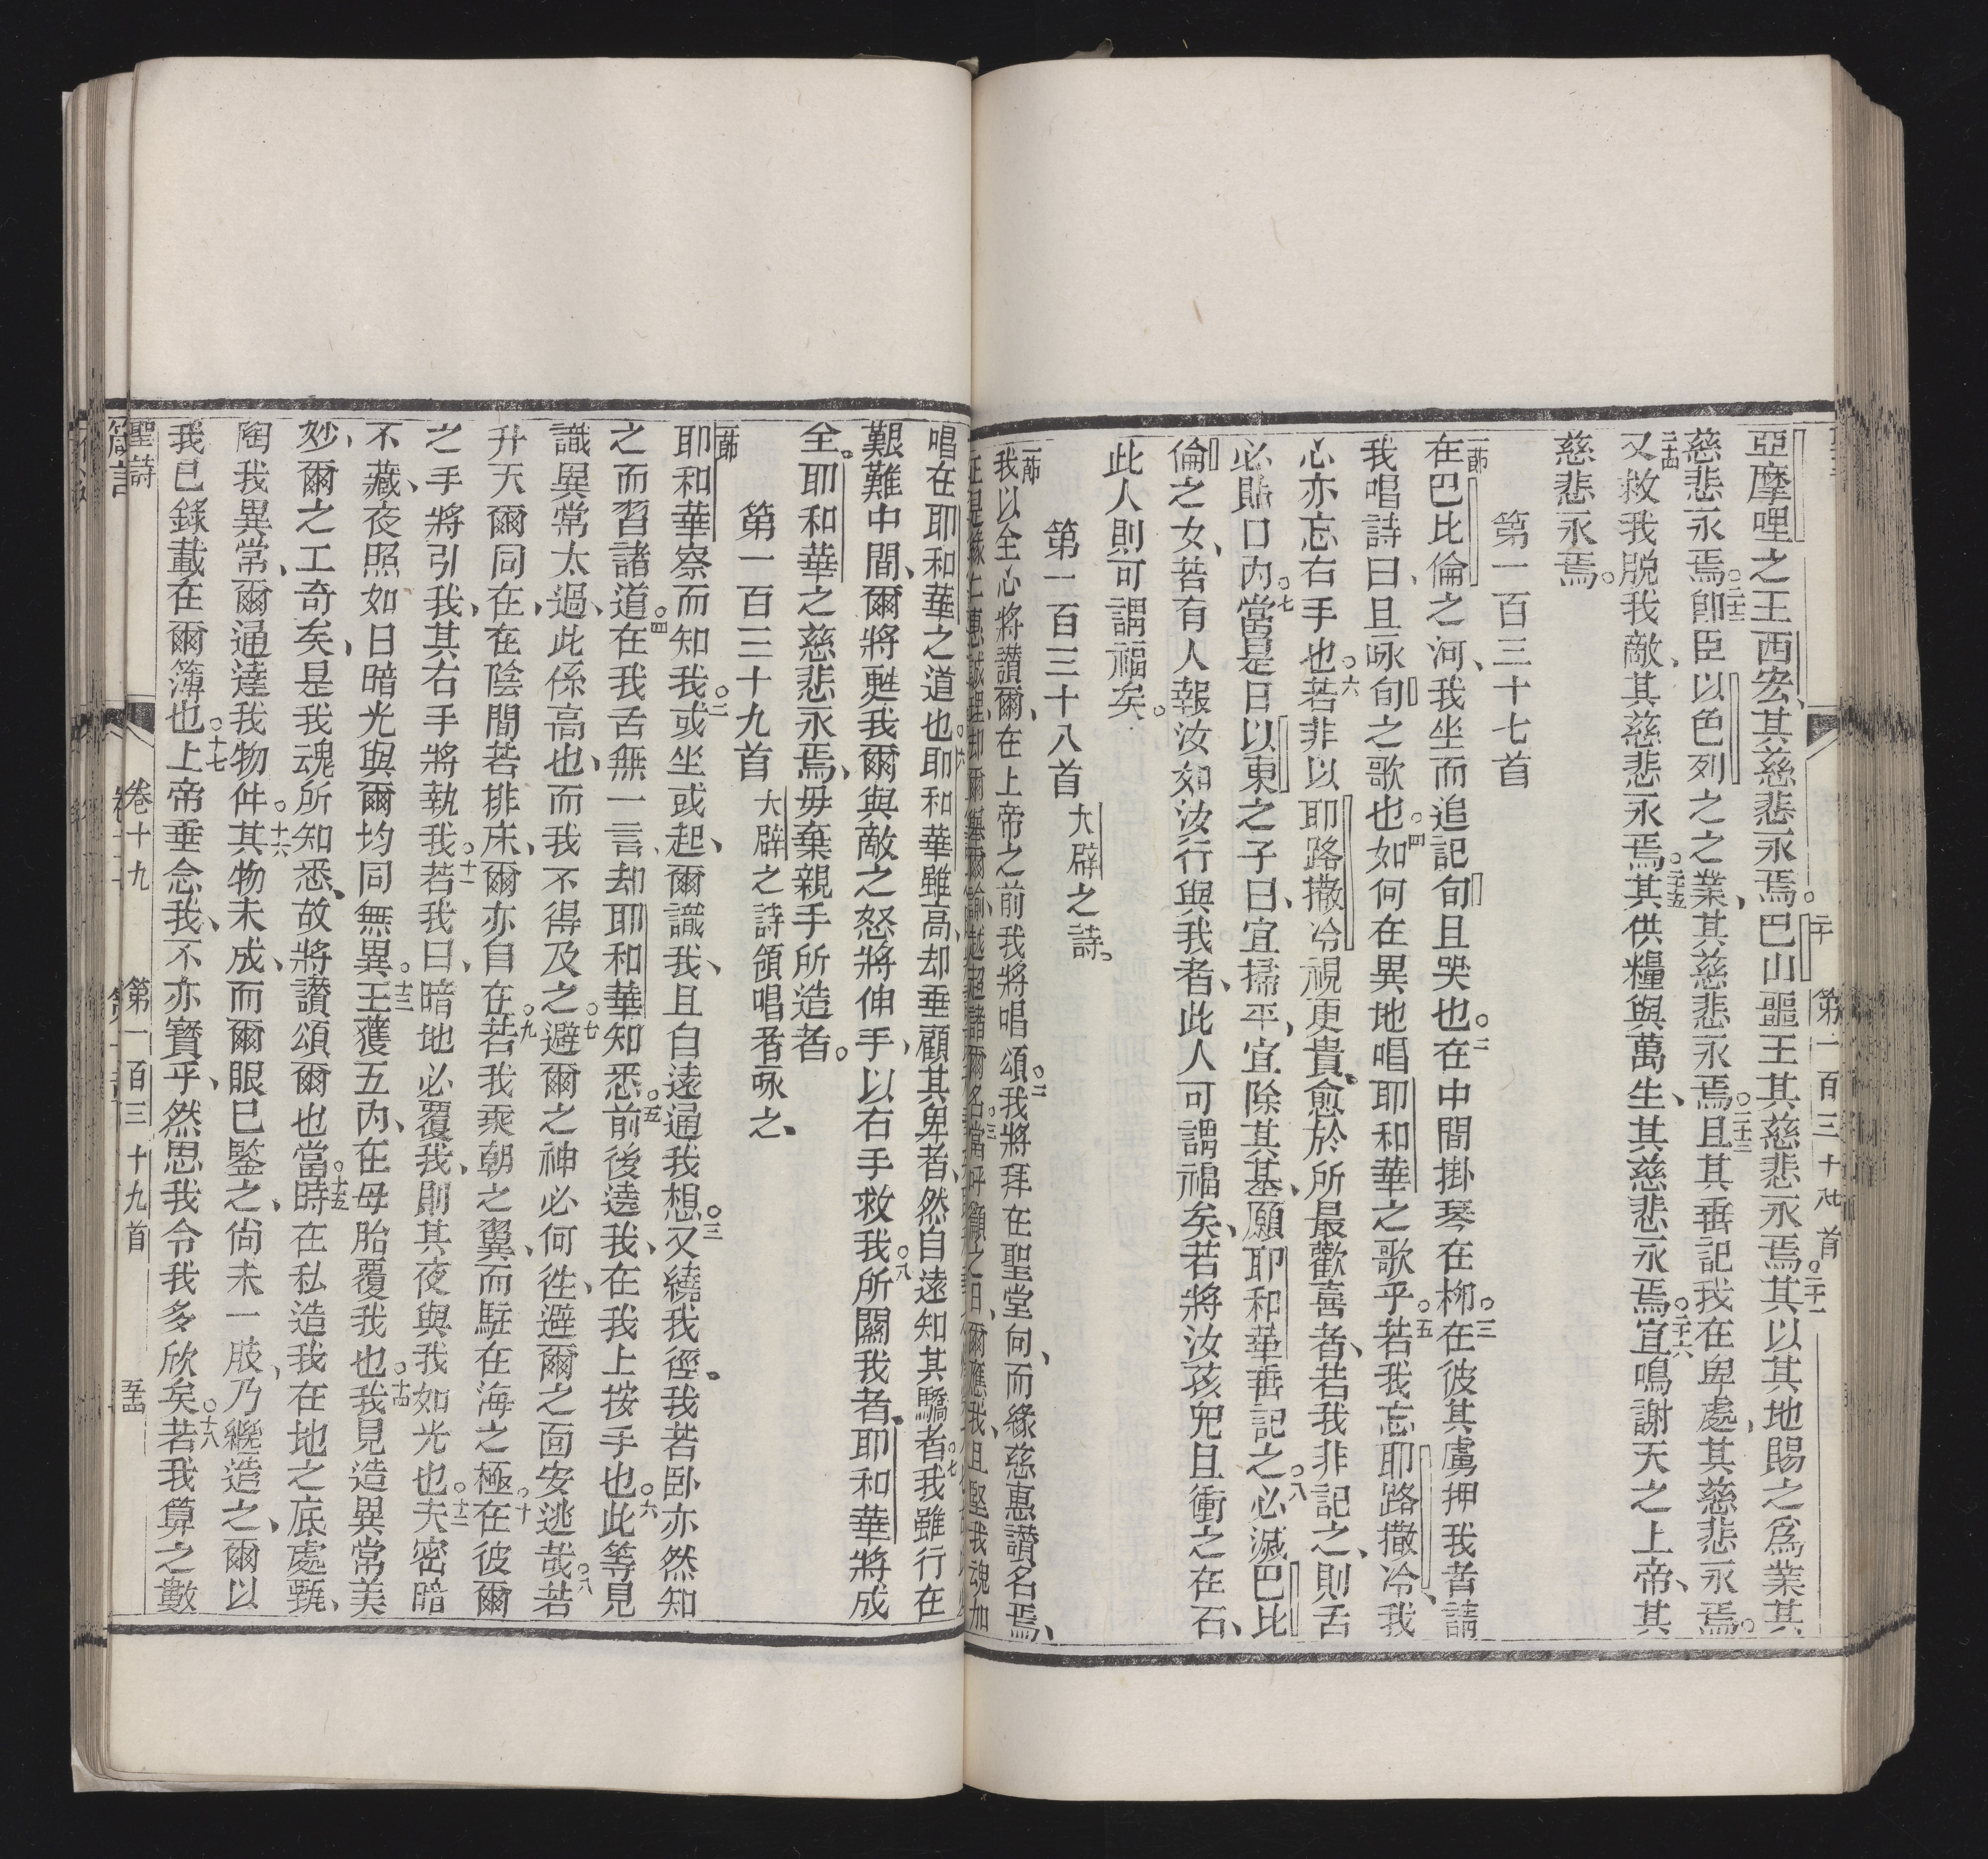 亞摩哩之王西宏、其慈悲永焉。二十巴山噩王其慈悲永焉。二十一其以其地賜之為業其
慈悲永焉。二十二卽臣以色列之之業、其慈悲永焉。二十三且其垂記我在卑處、其慈悲永焉。
二十四又救我脱我敵、其慈悲永焉。二十五其供糧與萬生、其慈悲永焉。二十六宜鳴謝天之上帝、其
慈悲永焉。
第一百三十七首
一節在巴比倫之河、我坐而追記旬且哭也。二在中間掛琴在柳。三在彼其虜押我者請
我唱詩曰、且咏旬之歌也。四如何在異地唱耶和華之歌乎。五若我忘耶路撒冷、我
心亦忘右手也。六若非以耶路撒冷視更貴、愈於所最歡喜者、若我非記之、則舌
必貼口內。七當是日以東之子曰、宜掃平、宜除其基、願耶和華垂記之。八必滅巴比
倫之女、若有人報汝如汝行與我者、此人可謂福矣、若將汝孩兒且衝之在石、
此人則可謂福矣。
第一百三十八首 大辟之詩。
一節我以全心將讃爾、在上帝之前我將唱頌。二我將拜在聖堂向、而緣慈惠讃名焉、
正是緣仁惠誠理、却爾舉爾諭、越超諸爾名。三當呼籲之日、爾應我、且堅我魂加
唱在耶和華之道也。六耶和華雖高、却垂顧其卑者、然自遠知其驕者。七我雖行在
艱難中間、爾將甦我爾與敵之怒將伸手、以右手救我。八所關我者、耶和華將成
全。耶和華之慈悲永焉、毋棄親手所造者。
第一百三十九首 大辟之詩領唱者咏之、
一節耶和華察而知我。二或坐或起、爾識我、且自遠通我想。三又繞我徑。我若卧亦然知
之而習諸道。四在我舌無一言、却耶和華知悉。五前後遶我、在我上按手也。六此等見
識異常太過、此係高也、而我不得及之。七避爾之神必何徃、避爾之面安逃哉。八若
升天爾同在、在陰間若排床、爾亦自在。九若我乘朝之翼、而駐在海之極。十在彼爾
之手將引我、其右手將執我。十一若我曰、暗地必覆我、則其夜與我如光也。十二夫密暗
不藏、夜照如日暗光與爾均同無異。十三王獲五內、在母胎覆我也。十四我見造異常美
妙、爾之工奇矣、是我魂所知悉、故將讃頌爾也。十五當時在私造我在地之底處甄、
陶我異常、爾通達我物件。十六其物未成、而爾眼已鑒之、尙未一肢、乃繼造之、爾以
我已錄載在爾簿也。十七上帝垂念我、不亦寳乎、然思我令我多欣矣。十八若我算之數
聖詩 卷十九 第一百三十九首 五十四